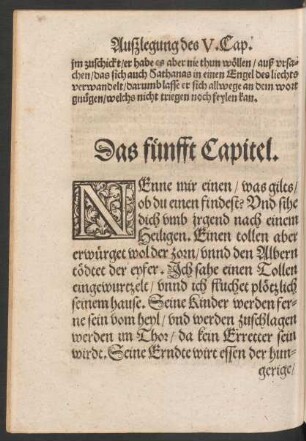 Außlegung des V. Cap.
jm zuschickt/er habe es aber nie thun wöllen/ auß vrsa-
chen/das sich auch Sathanas in einen Engel des liechts
verwandelt/darumb lasse er sich allwege an dem wort
gnügen/welchs nicht triegen noch feylen kan.
Das fünfft Capitel.
NEnne mir einen/was gilts/
ob du einen findest? Vnd sihe
dich vmb jrgend nach einem
Heiligen. Einen tollen aber
erwürget wol der zorn/vnnd den Albern
tödtet der eyfer. Ich sahe einen Tollen
eingewurtzelt/vnnd ich fluchet plötzlich
seinem hause. Seine Kinder werden fer-
ne sein vom heyl/vnd werden zuschlagen
werden im Thor/da kein Erretter sein
wirdt. Seine Erndte wirt essen der hun-
gerige/